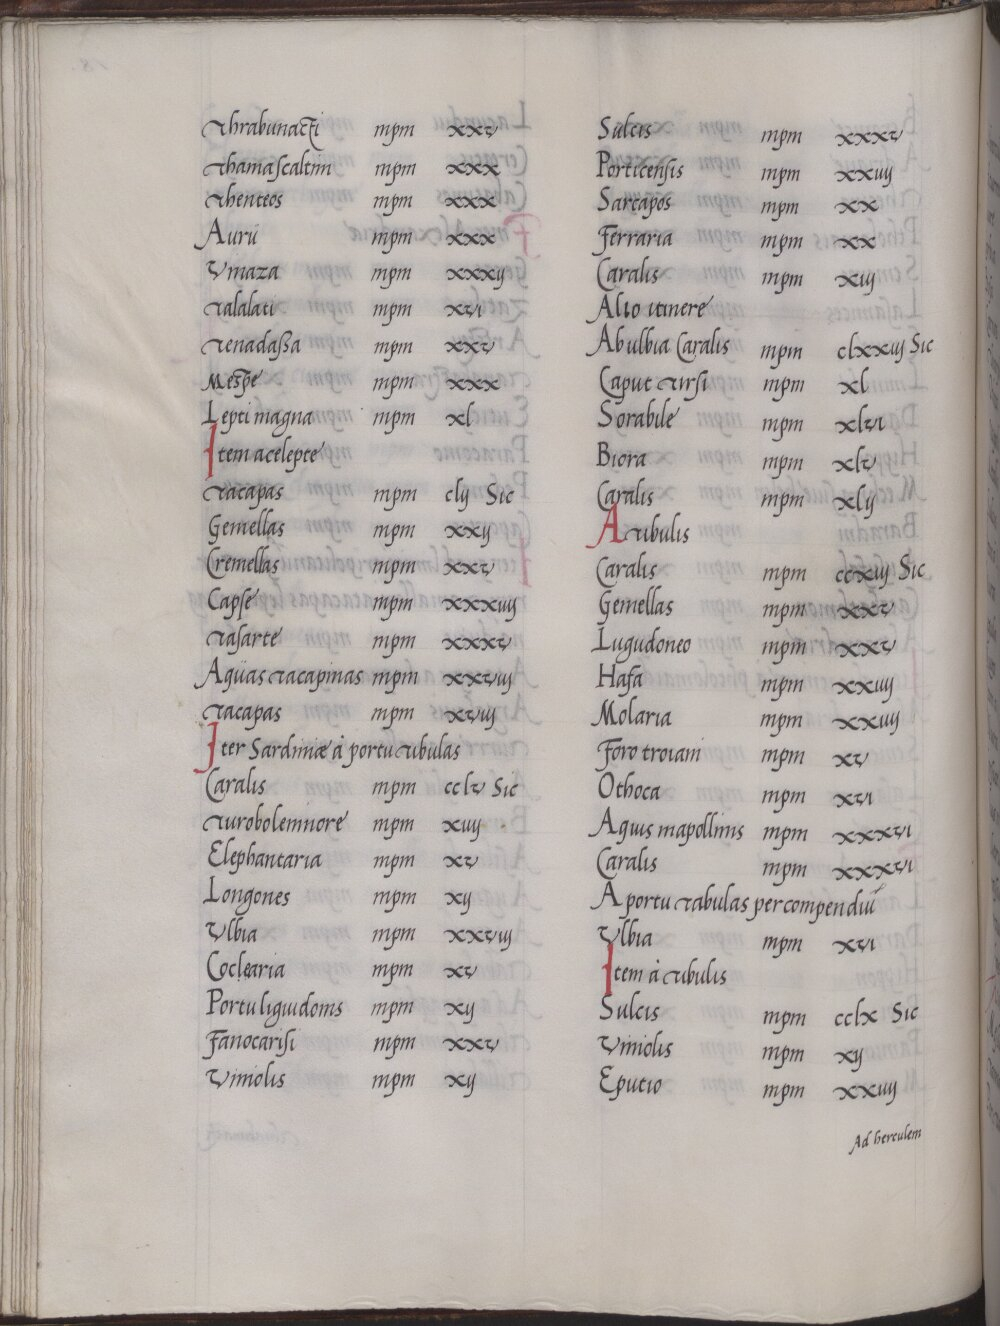 Thrabunacti mpm xxv
Thamascaltin mpm xxx
Thenteos mpm xxx
Auru mpm xxx
Vinaza mpm xxxij
Talalati mpm xvi
Tenadassa mpm xxv
Mespe mpm xxx
Lepti magna mpm xl
Item acelepte
Tacapas mpm clij Sic
Gemellas mpm xxij
Cremellas mpm xxv
Capse mpm xxxiiij
Tasarte mpm xxxv
Aquas Tacapinas mpm xxviij
Tacapas mpm xviij
Iter Sardiniæ à portu Tibulas
Caralis mpm cclv Sic
Turobolemniore mpm xiiij
Elephantaria mpm xv
Longones mpm xij
Vlbia mpm xxviij
Coclearia mpm xv
Portu liguidonis mpm xij
Fanocarisi mpm xxv
Viniolis mpm xij
Sulcis mpm xxxv
Porticensis mpm xxiiij
Sarcapos mpm xx
Ferraria mpm xx
Caralis mpm xiij
Alio itinere
Ab ulbia Caralis mpm clxxiij Sic
Caput Tirsi mpm xl
Sorabile mpm xlvi
Biora mpm xlv
Caralis mpm xlij
A Tibulis
Caralis mpm ccxiij Sic
Gemellas mpm xxv
Lugudoneo mpm xxv
Hafa mpm xxiiij
Molaria mpm xxiiij
Foro troiani mpm xv
Othoca mpm xvi
Aquis mapollinis mpm xxxvi
Caralis mpm xxxvi
A portu Tabulas per compendiũ
Vlbia mpm xvi
Item à Tibulis
Sulcis mpm cclx Sic
Viniolis mpm xij
Eputio mpm xxiiij
Ad herculem